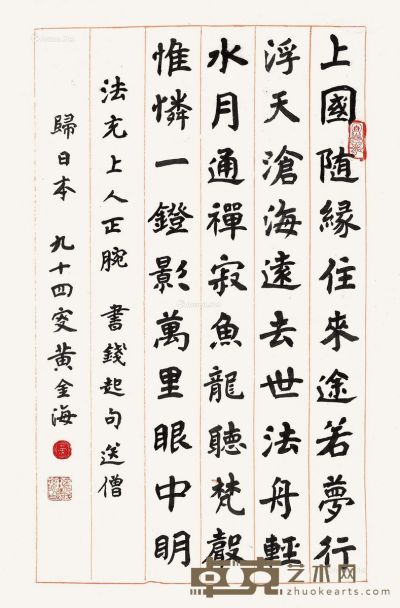 上國随緣住來途若夢行
浮天滄海遠去世法舟輕
水月通禪寂魚龍聽梵聲
惟憐一鐙影萬里眼中明
法充上人正腕 書錢起句送僧
歸日本 九十四叟黃金海
卓克艺术网
zhuokearts.com